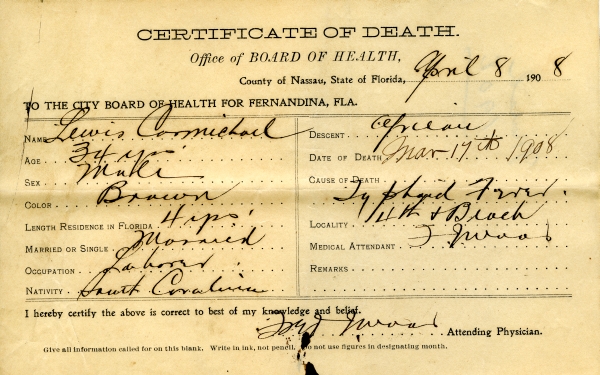 CERTIFICATE OF DEATH.
Office of BOARD OF HEALTH,
County of Nassau, State of Florida, April 8 1908
TO THE CITY BOARD OF HEALTH FOR FERNANDINA, FLA.
NAME Lewis Carmichael
AGE 34 yrs
SEX Male
COLOR Brown
LENGTH RESIDENCE IN FLORIDA 4 yrs
MARRIED OR SINGLE Married
OCCUPATION Laborer
NATIVITY South Carolina
DESCENT African
DATE OF DEATH Mar 17th 1908
CAUSE OF DEATH
Typhoid Fever.
LOCALITY 14th & Beach
MEDICAL ATTENDANT
REMARKS
I hereby certify the above is correct to best of my knowledge and belief.
Attending Physician.
Give all information called for on this blank. Write in ink, not pencil. Do not use figures in designating month.